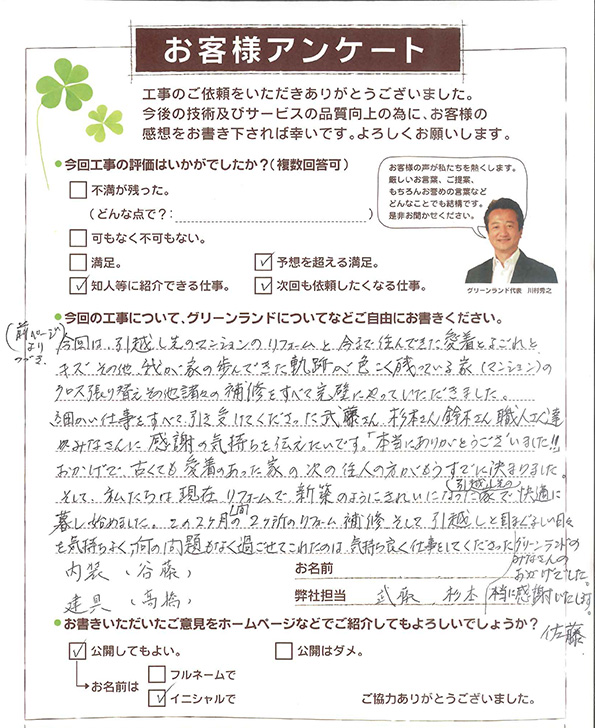 お客様アンケート
工事のご依頼をいただきありがとうございました。
今後の技術及びサービスの品質向上の為に、お客様の
感想をお書き下されば幸いです。よろしくお願いします。
●今回工事の評価はいかがでしたか？（複数回答可）
不満が残った。
（どんな点で？：　）
可もなく不可もない。
満足。
✓予想を超える満足。
✓知人等に紹介できる仕事。
✓次回も依頼したくなる仕事。
お客様の声が私たちを熱くします。
厳しいお言葉、ご提案、
もちろんお誉めの言葉など
どんなことでも結構です。
是非お聞かせください。
グリーンランド代表　川村秀之
●今回の工事について、グリーンランドについてなどご自由にお書きください。
(前ページよりつづき)
今回は、引越し先のマンションのリフォームと、今まで住んできた愛着とよごれと
キズ その他 我が家の歩んできた軌跡が色こく残っている家（マンション）の
クロス張り替えその他諸々の補修をすべて完璧にやっていただきました。
細かい仕事をすべて引き受けてくださった武藤さん 杉本さん 鈴木さん 職人さん達
みなさんに感謝の気持ちを伝えたいです。「本当にありがとうございました!!
おかげで、古くても愛着のあった家の次の住人の方がもうすでに決まりました。
そして、私たちは現在 リフォームで新築のようにきれいになった引越し先の家で快適に
暮し始めました。この2ヶ月間の2ヶ所のリフォーム 補修 そして引越しと目まぐるしい日々
を気持ちよく何の問題もなく過ごせてこれたのは、気持ち良く仕事をしてくださった
グリーンランドの
みなさんの
おかげでした。
本当に感謝いたします。
佐藤
内装（谷藤）
建具（高橋）
お名前
弊社担当　武藤、杉本
●お書きいただいたご意見をホームページなどでご紹介してもよろしいでしょうか？
✓公開してもよい。
公開はダメ。
お名前は
フルネームで
✓イニシャルで
ご協力ありがとうございました。